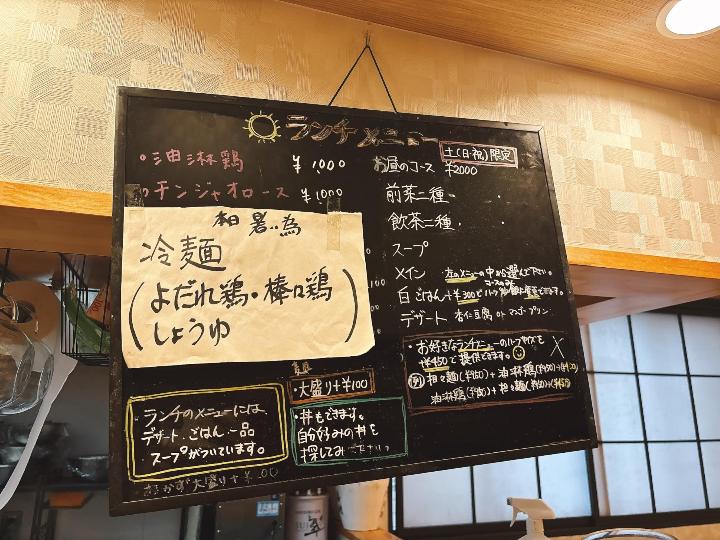 ランチメニュー
・油淋鶏 ¥1,000
・チンジャオロース ¥1,000
本日 暑い為
冷麺
(よだれ鶏・棒々鶏
しょうゆ)
・ランチのメニューには
デザート・ごはん・一品
スープがついています。
おかず大盛り+¥
・大盛り+¥100
・丼もできます。
自分好みの丼を
探してみ
土(日・祝)限定
お昼のコース ¥2000
前菜二種
飲茶二種
スープ
メイン 左のメニューの中から選んで下さい。
白ごはん +¥300で
デザート 杏仁豆腐 or マンゴープリン
・お好きなランチメニューのハーフサイズを
+¥450で提供できます。
例 担々麺(¥950)+油淋鶏
油淋鶏(¥950)+担々麺